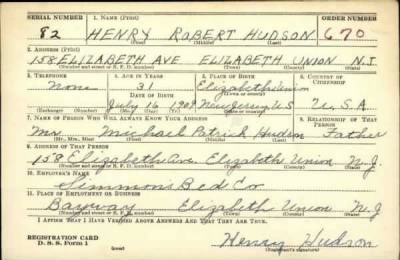 SERIAL NUMBER 1. NAME (Print) ORDER NUMBER
82 HENRY ROBERT HUDSON 670
(First) (Middle) (Last)
2. ADDRESS (Print)
158 ELIZABETH AVE ELIZABETH UNION N.J
(Number and street or R. F. D. number) (Town) (County) (State)
3. TELEPHONE 4. AGE IN YEARS 5. PLACE OF BIRTH 6. COUNTRY OF CITIZENSHIP
None 31 Elizabeth Union
DATE OF BIRTH (Town) (County)
July 16 1909 New Jersey, U.S U.S.A
(Exchange) (Number) (Mo.) (Day) (Yr.) (State or country)
7. NAME OF PERSON WHO WILL ALWAYS KNOW YOUR ADDRESS 8. RELATIONSHIP OF THAT PERSON
Mr. Michael Patrick Hudson Father
(Mr., Mrs., Miss) (First) (Middle) (Last)
9. ADDRESS OF THAT PERSON
158 Elizabeth Ave. Elizabeth Union N.J.
(Number and street or R. F. D. number) (Town) (County) (State)
10. EMPLOYER'S NAME
Simmons Bed Co
11. PLACE OF EMPLOYMENT OR BUSINESS
Bayway Elizabeth Union N.J
(Number and street or R. F. D. number) (Town) (County) (State)
I AFFIRM THAT I HAVE VERIFIED ABOVE ANSWERS AND THAT THEY ARE TRUE.
REGISTRATION CARD
D. S. S. Form 1 (over) Henry Hudson
(Registrant's signature)